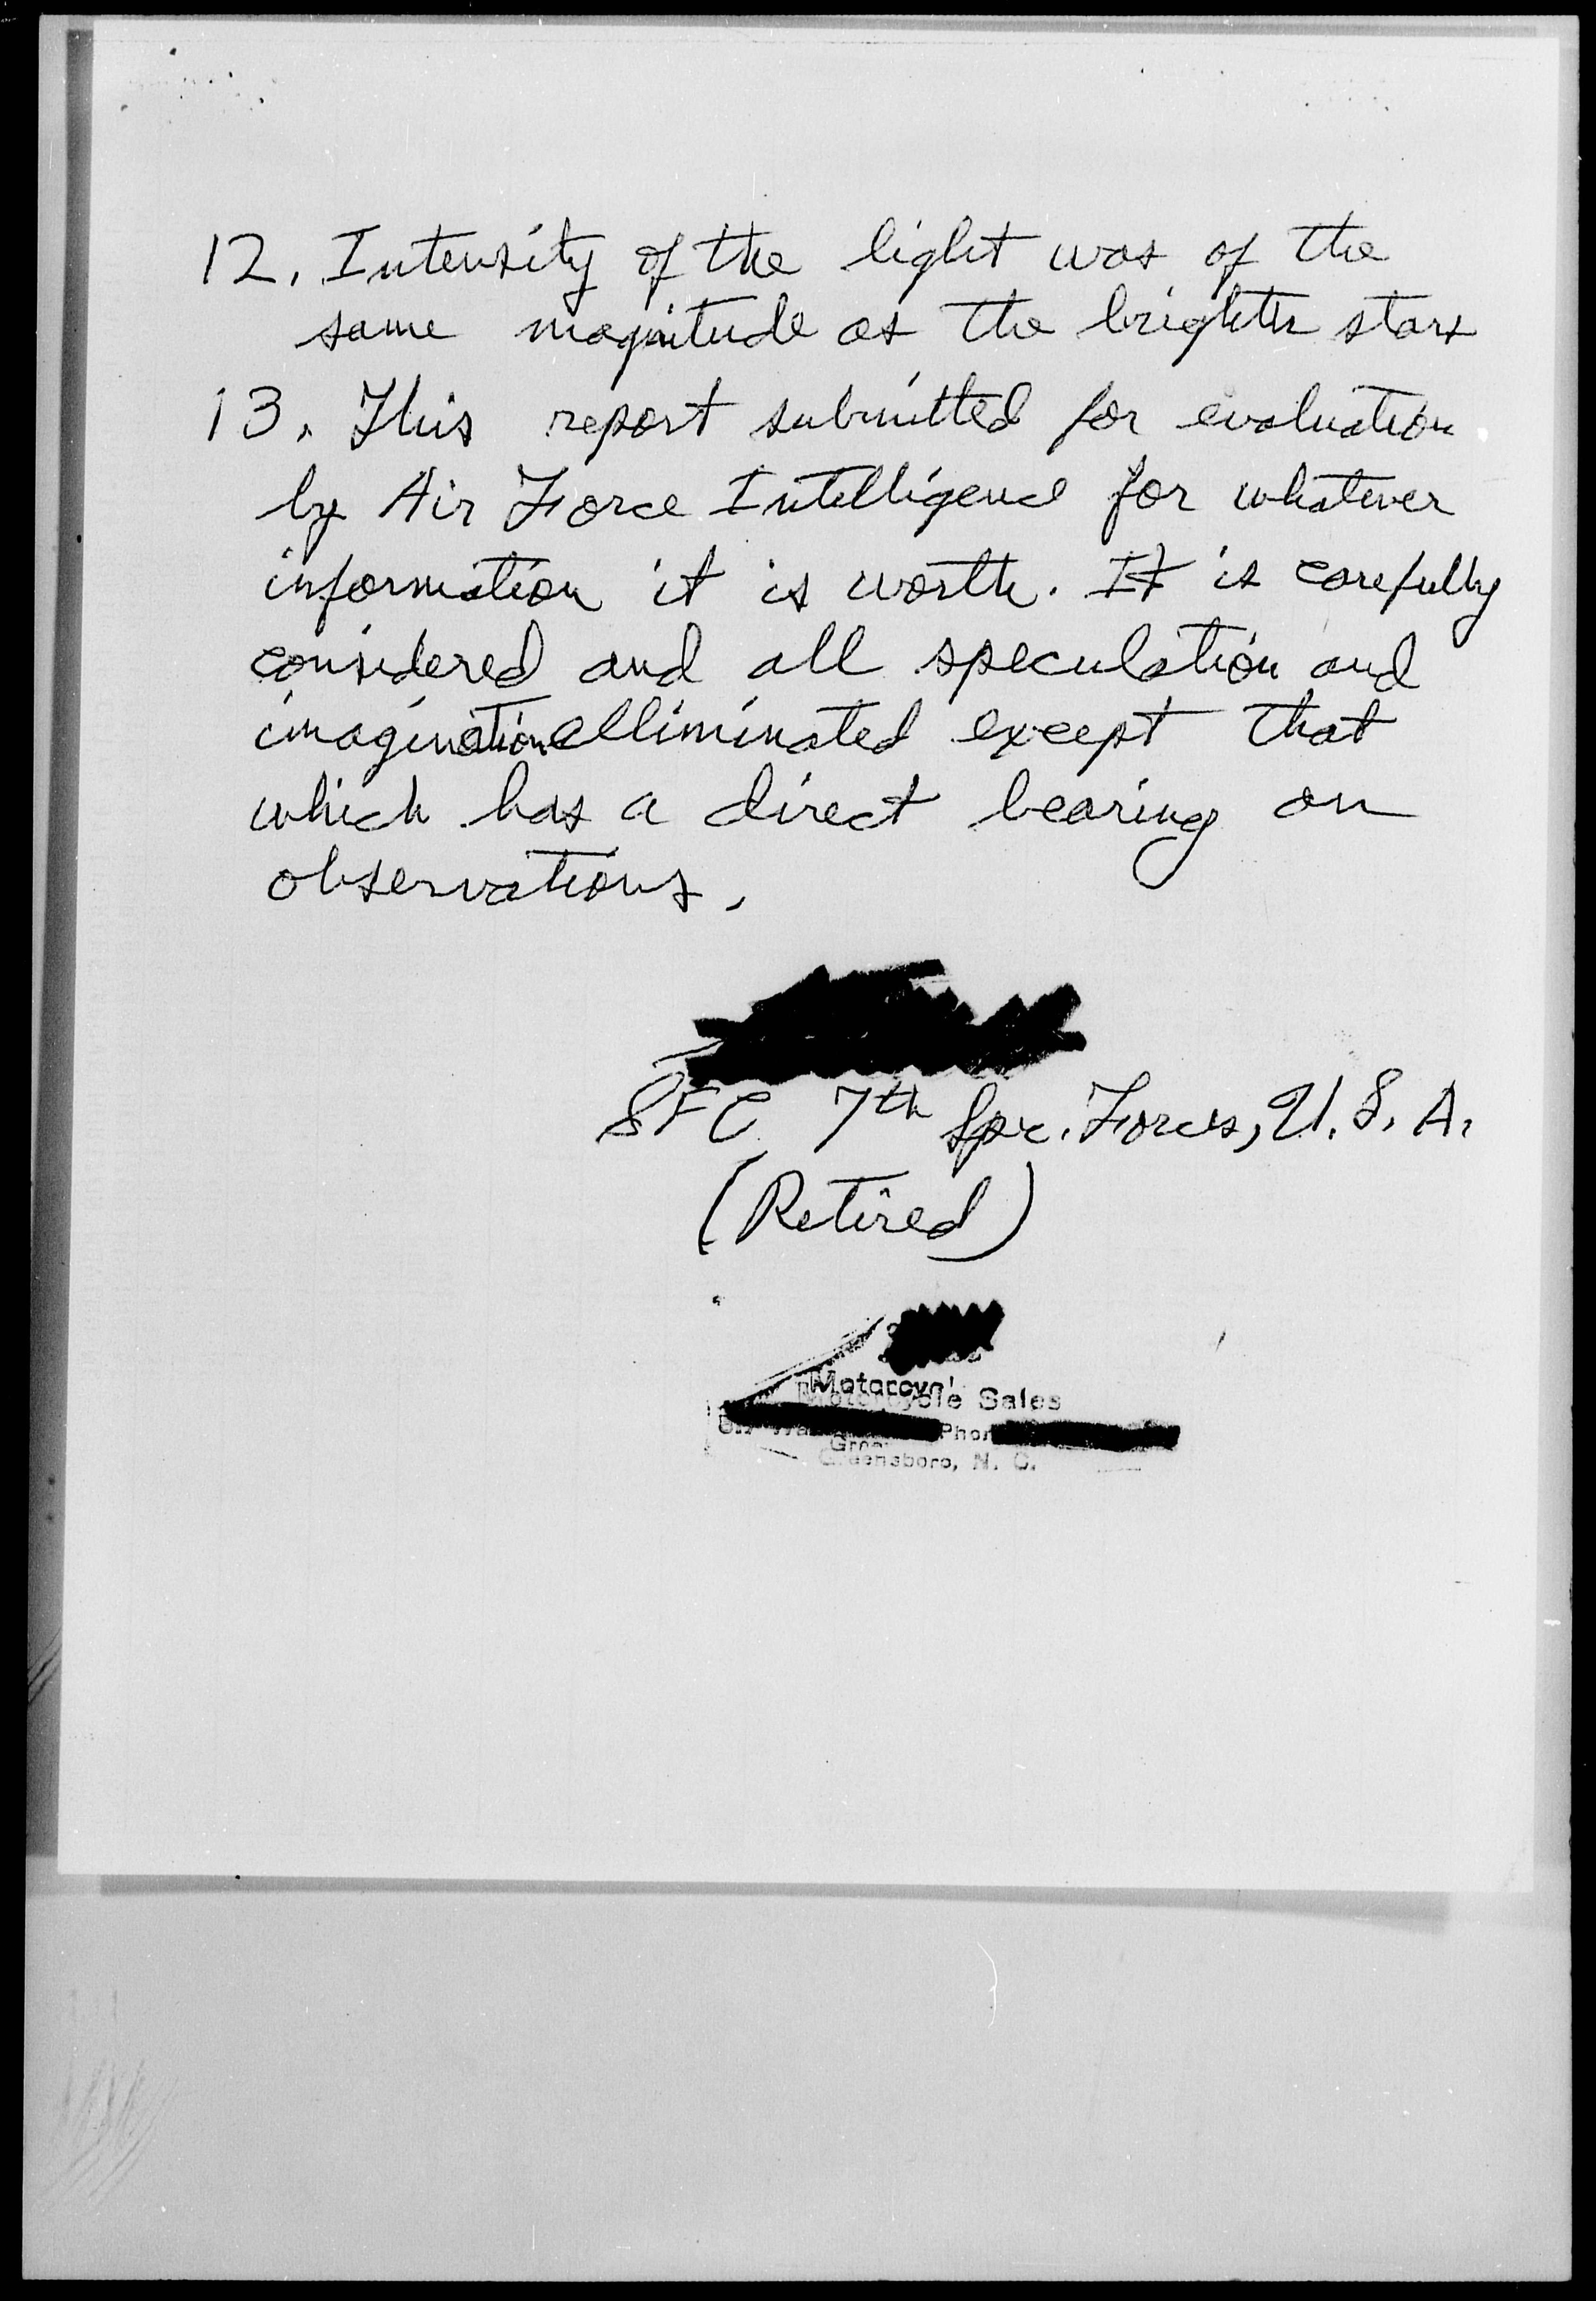 12. Intensity of the light was of the
same magnitude as the brighter stars
13. This report submitted for evaluation
by Air Force Intelligence for whatever
information it is worth. It is carefully
considered and all speculation and
imagination elliminated except that
which has a direct bearing on
observations.
SFC 7th Spc. Forces, U.S.A.
(Retired)
Motorcycle Sales
Greensboro, N. C.